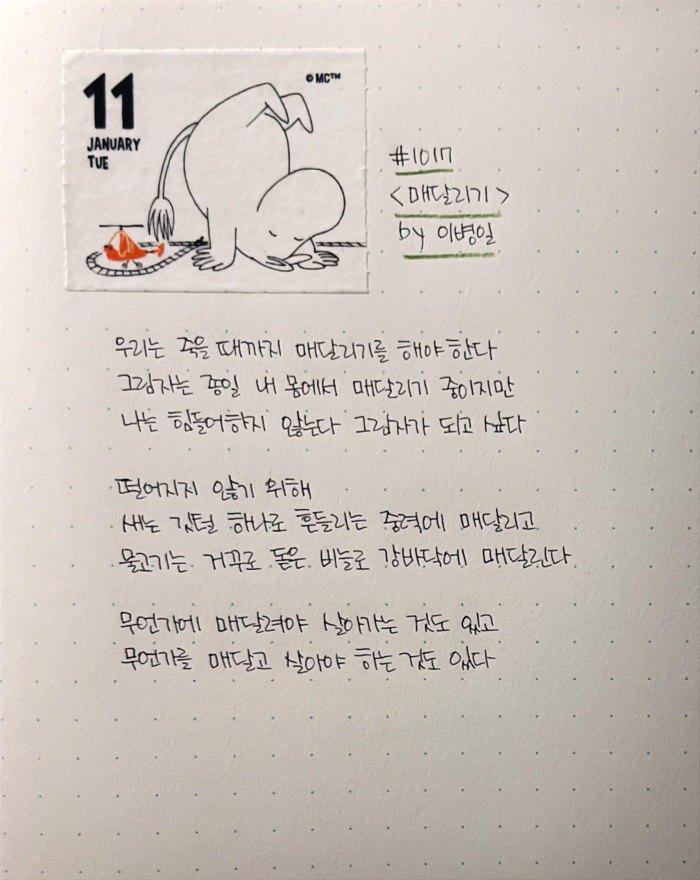 11
JANUARY
TUE
©MC™
#1017
<매달리기>
by 이병일
우리는 죽을 때까지 매달리기를 해야 한다
그림자는 종일 내 몸에서 매달리기 중이지만
나는 힘들어하지 않는다 그림자가 되고 싶다
떨어지지 않기 위해
새는 깃털 하나로 흔들리는 중력에 매달리고
물고기는 거꾸로 돋은 비늘로 강바닥에 매달린다
무언가에 매달려야 살아가는 것도 있고
무언가를 매달고 살아야 하는 것도 있다